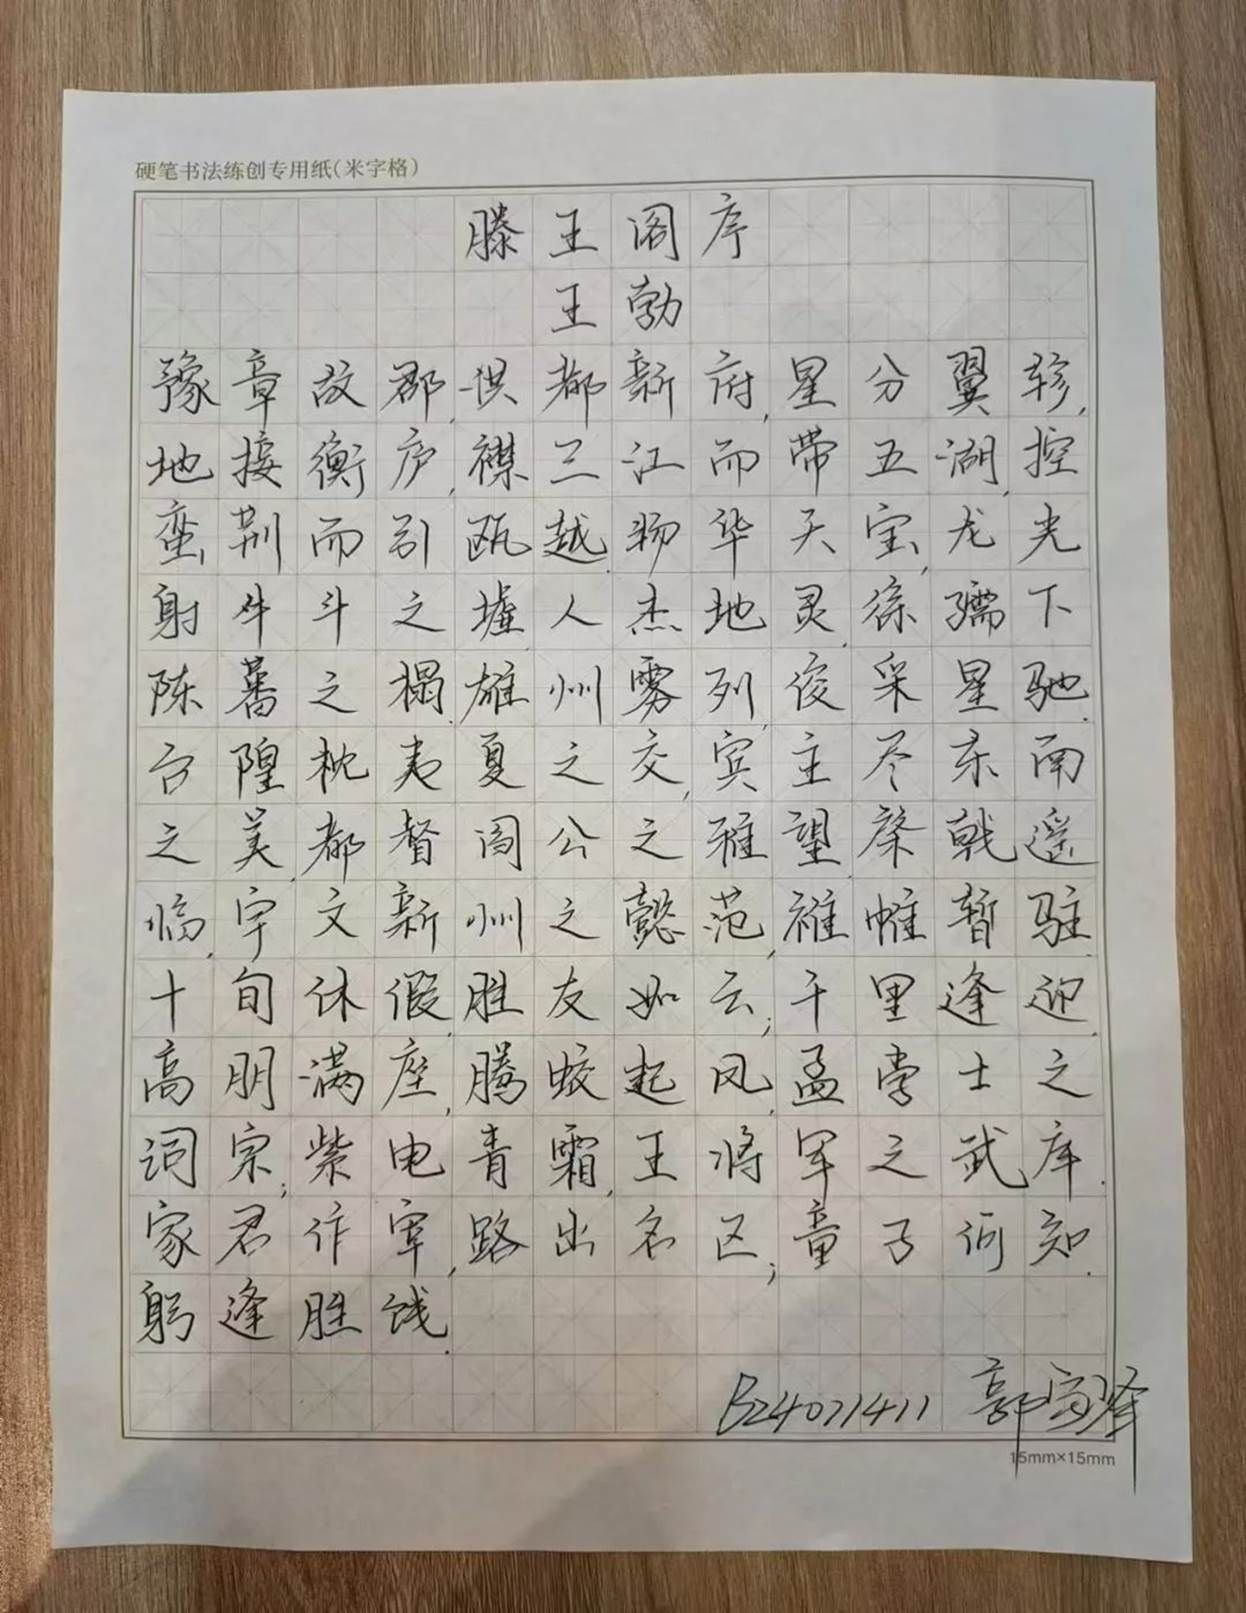 硬笔书法练创专用纸(米字格)
滕王阁序
王勃
豫章故郡,洪都新府,星分翼轸,
地接衡庐,襟三江而带五湖,控
蛮荆而引瓯越.物华天宝,龙光
射牛斗之墟.人杰地灵,徐孺下
陈蕃之榻.雄州雾列,俊采星驰.
台隍枕夷夏之交,宾主尽东南
之美.都督阎公之雅望,棨戟遥
临,宇文新州之懿范,襜帷暂驻.
十旬休假,胜友如云;千里逢迎,
高朋满座.腾蛟起凤,孟学士之
词宗;紫电青霜,王将军之武库.
家君作宰,路出名区;童子何知,
躬逢胜饯.
B24071411
15mm×15mm